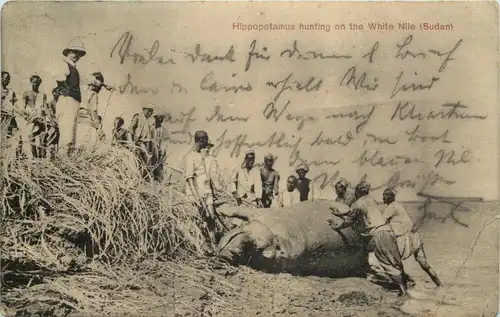 Hippopotamus hunting on the White Nile (Sudan)
Vielen Dank für deinen l. Brief
den in Cairo erhielt. Wir sind
auf dem Wege nach Khartum
hoffentlich bald im Boot
blauen Nil.